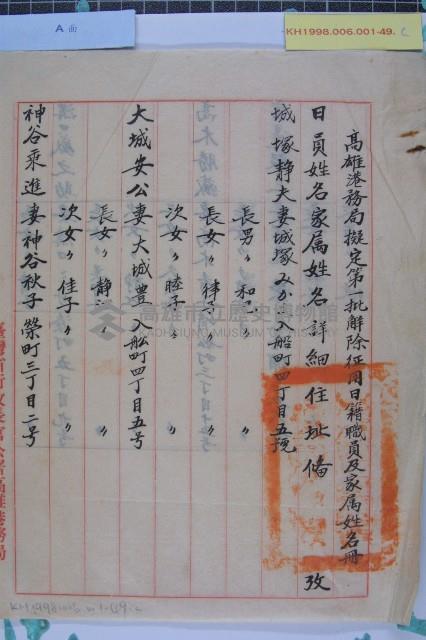 A面
KH1998.006.001-49.c
高雄港務局擬定第一批解除征用日籍職員及家属姓名冊
日員姓名家属姓名詳細住址俻 攷
城塚静夫妻城塚みか 入船町四丁目五號
長男〃和 〃
長女〃律子 〃
次女〃睦子 〃
大城安公妻大城豊 入船町四丁目五号
長女〃静 〃
次女〃佳子〃 〃
神谷乘進妻神谷秋子 榮町三丁目二号
臺灣省行政長官公署高雄港務局
高雄市立歷史博物館
KAOHSIUNG MUSEUM OF HISTORY
KH1998.006.001-049.c